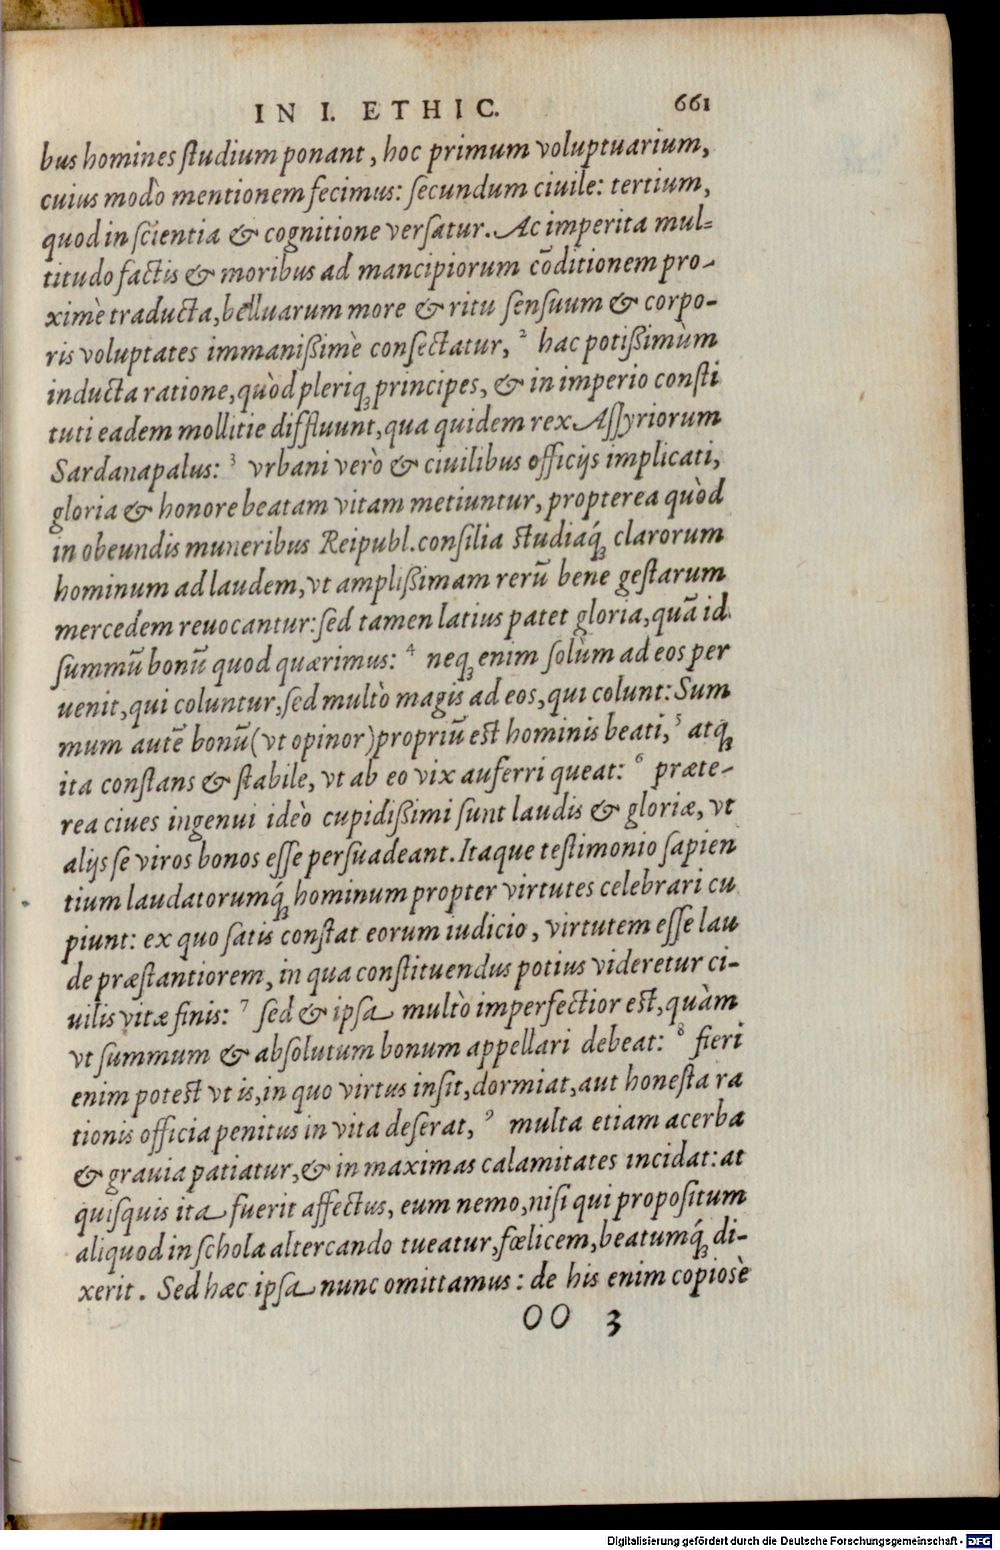 IN I. ETHIC. 661
bus homines ſtudium ponant, hoc primum voluptuarium,
cuius modò mentionem fecimus: ſecundum ciuile: tertium,
quod in ſcientia & cognitione verſatur. Ac imperita mul-
titudo factis & moribus ad mancipiorum cōditionem pro-
ximè traducta, belluarum more & ritu ſenſuum & corpo-
ris voluptates immanißimè conſectatur, ² hac potißimùm
inducta ratione, quòd pleriq; principes, & in imperio conſti
tuti eadem mollitie diffluunt, qua quidem rex Aſſyriorum
Sardanapalus: ³ vrbani verò & ciuilibus officijs implicati,
gloria & honore beatam vitam metiuntur, propterea quòd
in obeundis muneribus Reipubl. conſilia ſtudiaq́; clarorum
hominum ad laudem, vt amplißimam rerū bene geſtarum
mercedem reuocantur: ſed tamen latius patet gloria, quā id
ſummū bonū quod quærimus: ⁴ neq; enim ſolùm ad eos per
uenit, qui coluntur, ſed multò magis ad eos, qui colunt: Sum
mum autē bonū (vt opinor) propriū eſt hominis beati, ⁵ atq;
ita conſtans & ſtabile, vt ab eo vix auferri queat: ⁶ præte-
rea ciues ingenui ideò cupidißimi ſunt laudis & gloriæ, vt
alijs ſe viros bonos eſſe perſuadeant. Itaque teſtimonio ſapien
tium laudatorumq́; hominum propter virtutes celebrari cu
piunt: ex quo ſatis conſtat eorum iudicio, virtutem eſſe lau
de præſtantiorem, in qua conſtituendus potius videretur ci-
uilis vitæ finis: ⁷ ſed & ipſa multò imperfectior eſt, quàm
vt ſummum & abſolutum bonum appellari debeat: ⁸ fieri
enim poteſt vt is, in quo virtus inſit, dormiat, aut honeſta ra
tionis officia penitus in vita deſerat, ⁹ multa etiam acerba
& grauia patiatur, & in maximas calamitates incidat: at
quiſquis ita fuerit affectus, eum nemo, niſi qui propoſitum
aliquod in ſchola altercando tueatur, fœlicem, beatumq́; di-
xerit. Sed hæc ipſa nunc omittamus: de his enim copioſè
OO 3
Digitalisierung gefördert durch die Deutsche Forschungsgemeinschaft - DFG